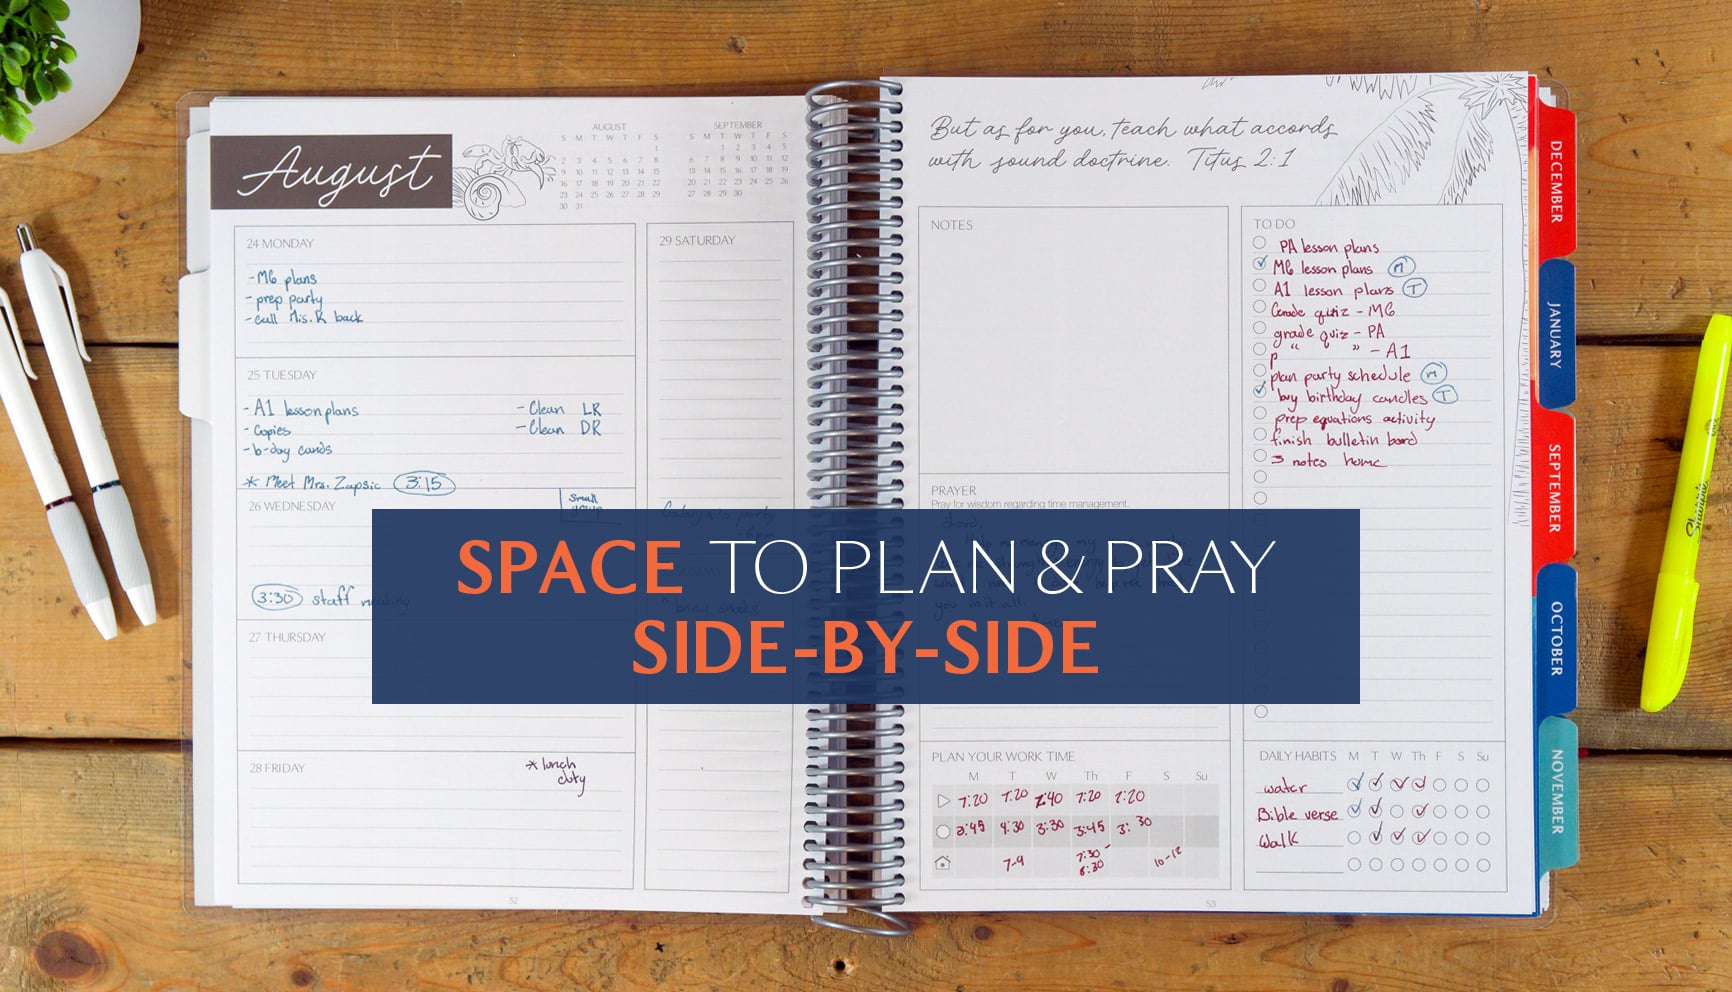 August
AUGUST
S M T W T F S
1
2 3 4 5 6 7 8
9 10 11 12 13 14 15
16 17 18 19 20 21 22
23 24 25 26 27 28 29
30 31
SEPTEMBER
S M T W T F S
1 2 3 4 5
6 7 8 9 10 11 12
13 14 15 16 17 18 19
20 21 22 23 24 25 26
27 28 29 30
24 MONDAY
-M6 plans
-prep party
-call Mrs. R back
25 TUESDAY
-A1 lesson plans
-Copies
-b-day cards
-Clean LR
-Clean DR
* Meet Mrs. Zapsic 3:15
26 WEDNESDAY
small
group
3:30 staff meeting
27 THURSDAY
28 FRIDAY
* lunch
duty
29 SATURDAY
party
SUNDAY
* bring snacks
52
But as for you, teach what accords
with sound doctrine. Titus 2:1
NOTES
PRAYER
Pray for wisdom regarding time management.
Lord,
you in it all.
Amen
TO DO
PA lesson plans
M6 lesson plans M
A1 lesson plans T
Grade quiz - M6
grade quiz - PA
" " - A1
plan party schedule M
buy birthday candles T
prep equations activity
finish bulletin board
3 notes home
PLAN YOUR WORK TIME
M T W Th F S Su
7:20 7:20 7:40 7:20 7:20
3:45 4:30 3:30 3:45 3:30
7-9 7:30-
8:30 10-12
DAILY HABITS M T W Th F S Su
water
Bible verse
Walk
53
DECEMBER
JANUARY
SEPTEMBER
OCTOBER
NOVEMBER
Sharpie
SPACE TO PLAN & PRAY
SIDE-BY-SIDE